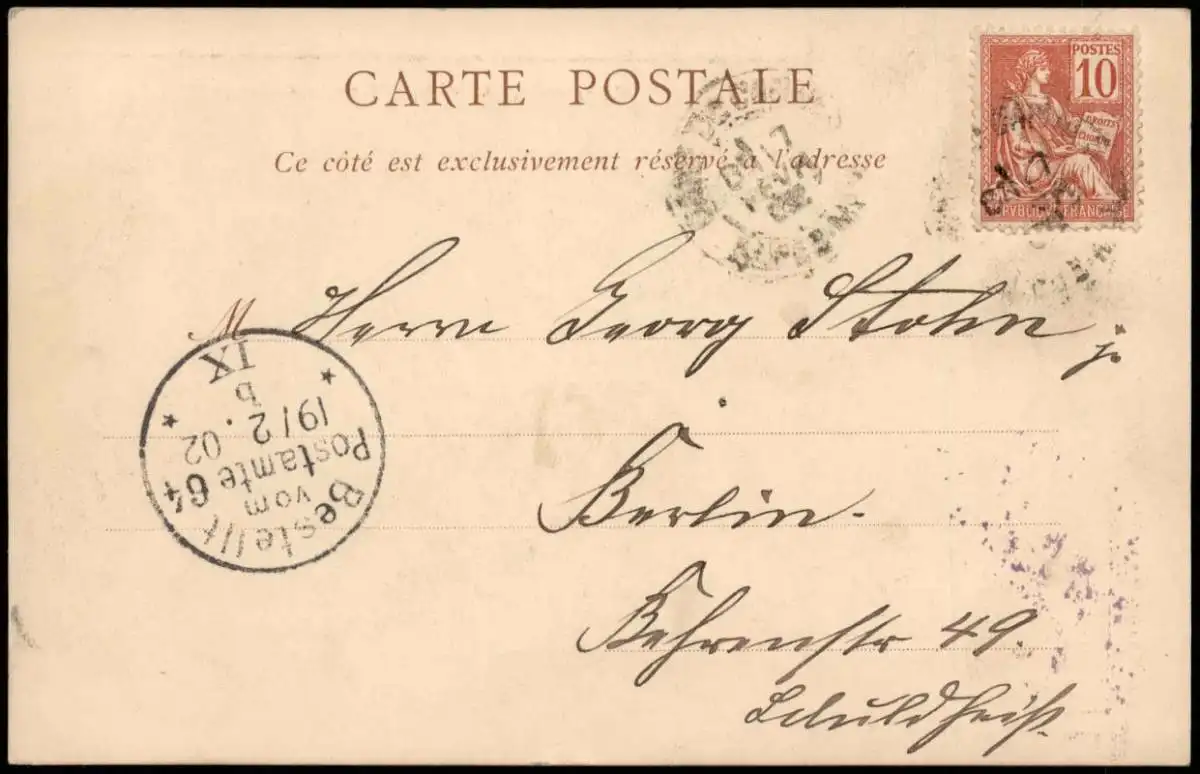 CARTE POSTALE
Ce côté est exclusivement réservé à l'adresse
POSTES
10
DROITS
REPVBLIQVE FRANÇAISE
M Herrn Georg Stohn jr.
Berlin.
Behrenstr 49.
Schuldheiß.
Bestellt
vom
Postamte 64
19/2.02
b
IX